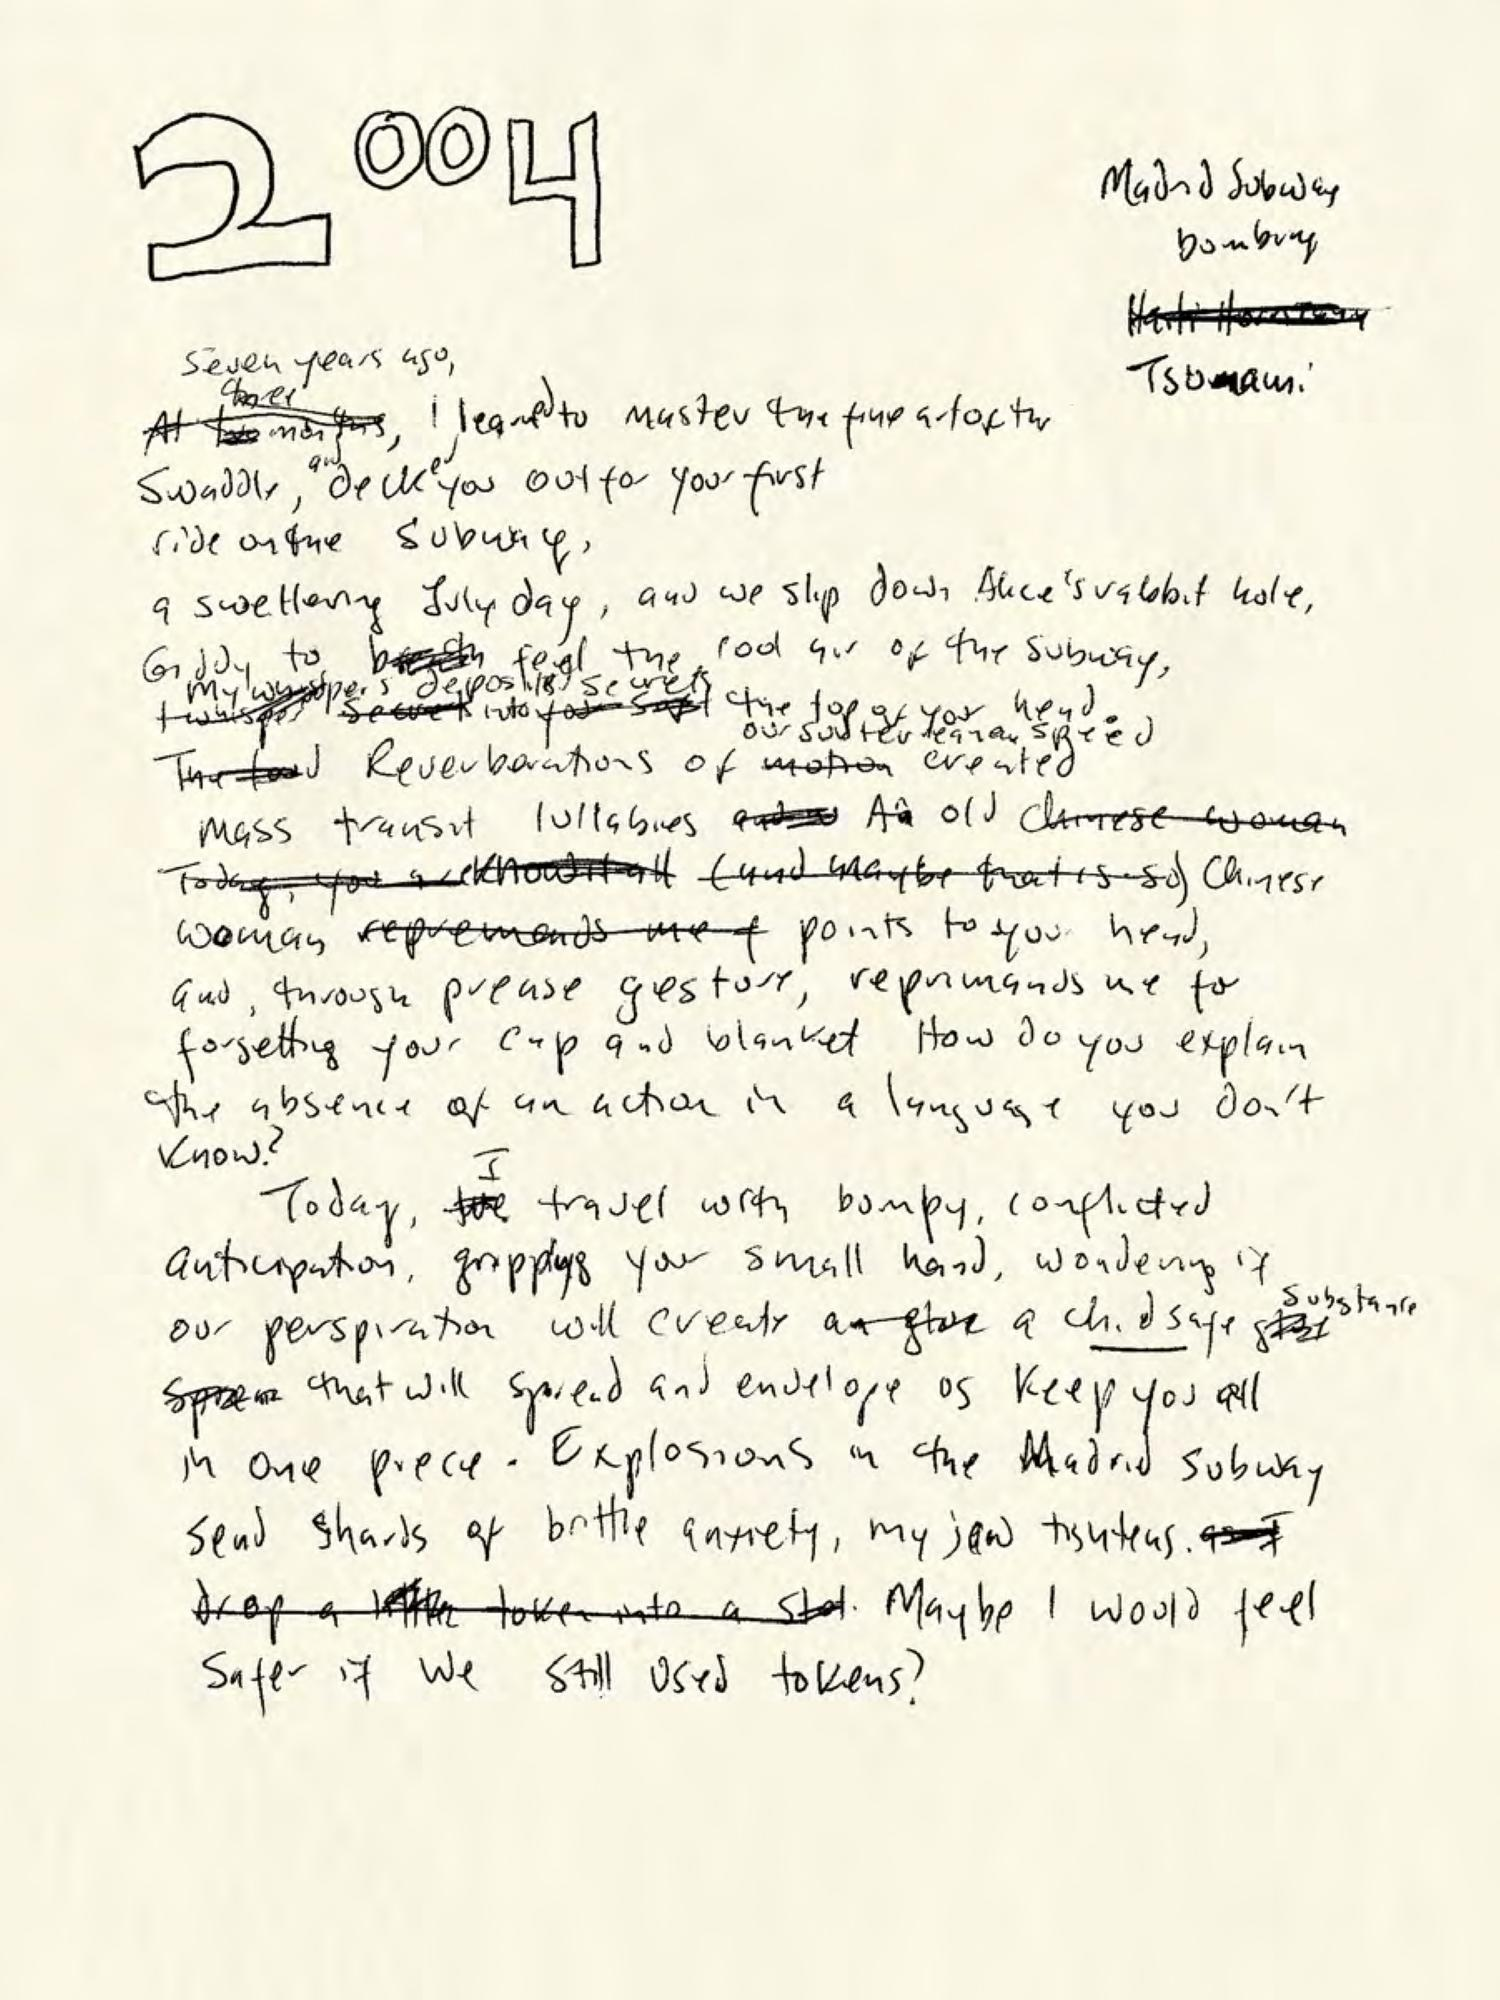 2004
Madrid Subway
bombing
Tsunami
Seven years ago,
three
At two months, I learned to master the fine art of the
Swaddle, and decked you out for your first
ride on the Subway,
a sweltering July day, and we slip down Alice's rabbit hole,
Giddy to feel the cool air of the subway,
My whispers deposited secrets
I whisper secrets into your soft the top of your head.
our subterranean speed
The loud Reverberations of motion created
mass transit lullabies An old Chinese woman
Today, you are know it all (and maybe that is so) Chinese
woman repremands me f points to your head,
and, through precise gesture, reprimands me for
forgetting your cap and blanket How do you explain
the absence of an action in a language you don't
know?
I
Today, we travel with bumpy, conflicted
anticipation, gripping your small hand, wondering if
our perspiration will create an glue a childsafe substance
that will spread and envelope us keep you all
in one piece. Explosions in the Madrid subway
send shards of brittle anxiety, my jaw tightens. as I
drop a little token into a slot. Maybe I would feel
Safer if we still used tokens?